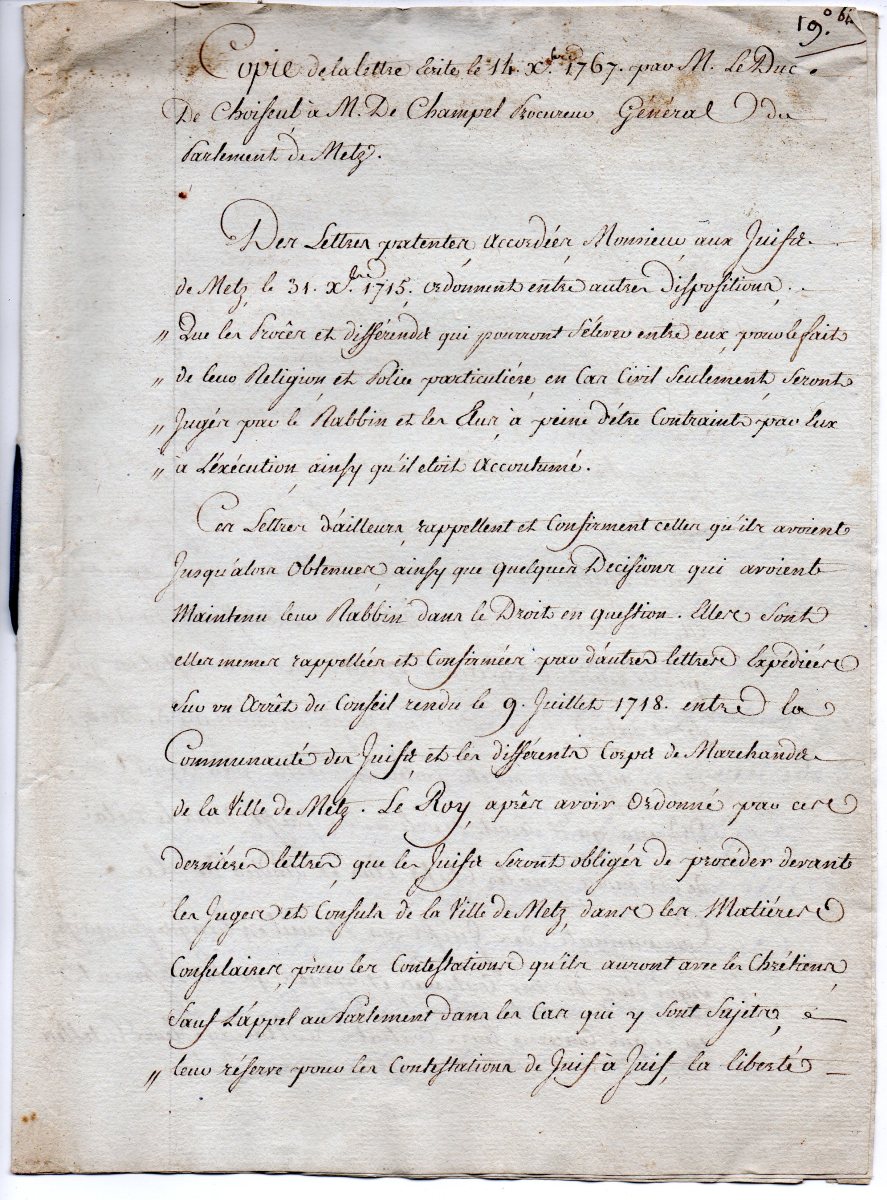 19.° bis
Copie de la lettre Ecrite le 14 X.bre 1767. par M. Le Duc
De Choiseul à M. De Champel Procureur Général du
Parlement de Metz.
Des Lettres patentes accordées Monsieur aux Juifs
de Metz le 31. X.bre 1715. ordonnent entre autres Dispositions
„ Que les Procês et différends qui pourront s'élever entre eux pour le fait
„ de leur Religion et Police particuliére en Cas Civil Seulement Seront
„ Jugés par le Rabbin et les Elus à peine d'être Contraints par Eux
„ à L'éxécution ainsy qu'il etoit accoutumé.
Ces Lettres d'ailleurs rappellent et Confirment celles qu'ils avoient
Jusqu'alors Obtenues ainsy que quelques Decisions qui avoient
Maintenu leur Rabbin dans le Droit en question. Elles Sont
elles memes rappellées et Confirmées par d'autres lettres Expédiées
Sur un Arrêt du Conseil rendu le 9. Juillet 1718. entre la
Communauté des Juifs et les différents Corps de Marchands
de la Ville de Metz. Le Roy aprês avoir Ordonné par ces
derniéres lettres que les Juifs Seront obligés de procéder devant
les Juges et Consuls de la Ville de Metz dans les Matiéres
Consulaires pour les Contestations qu'ils auront avec les Chrétiens
Sauf L'appel au Parlement dans les Cas qui y Sont Sujets
„ leur réserve pour les Contestations de Juif à Juif, la liberté